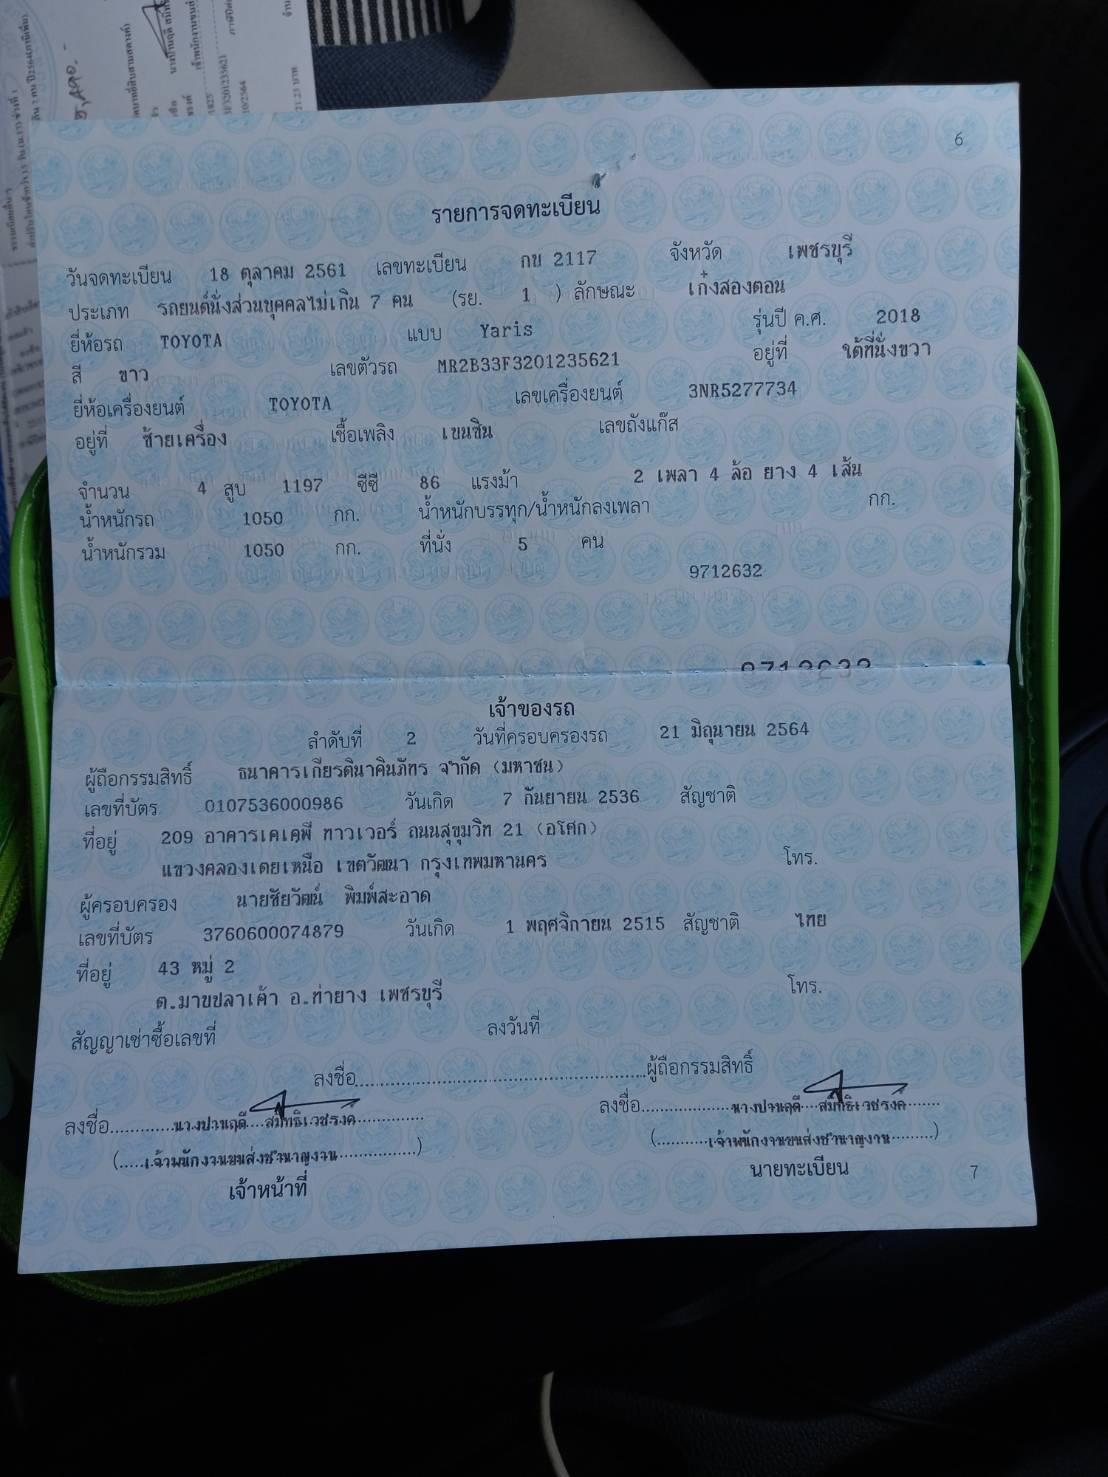 6
รายการจดทะเบียน
วันจดทะเบียน 18 ตุลาคม 2561 เลขทะเบียน กข 2117 จังหวัด เพชรบุรี
ประเภท รถยนต์นั่งส่วนบุคคลไม่เกิน 7 คน (รย. 1 ) ลักษณะ เก๋งสองตอน
ยี่ห้อรถ TOYOTA แบบ Yaris รุ่นปี ค.ศ. 2018
สี ขาว เลขตัวรถ MR2B33F3201235621 อยู่ที่ ใต้ที่นั่งขวา
ยี่ห้อเครื่องยนต์ TOYOTA เลขเครื่องยนต์ 3NR5277734
อยู่ที่ ซ้ายเครื่อง เชื้อเพลิง เบนซิน เลขถังแก๊ส
จำนวน 4 สูบ 1197 ซีซี 86 แรงม้า 2 เพลา 4 ล้อ ยาง 4 เส้น
น้ำหนักรถ 1050 กก. น้ำหนักบรรทุก/น้ำหนักลงเพลา กก.
น้ำหนักรวม 1050 กก. ที่นั่ง 5 คน
9712632
เจ้าของรถ
ลำดับที่ 2 วันที่ครอบครองรถ 21 มิถุนายน 2564
ผู้ถือกรรมสิทธิ์ ธนาคารเกียรตินาคินภัทร จำกัด (มหาชน)
เลขที่บัตร 0107536000986 วันเกิด 7 กันยายน 2536 สัญชาติ
ที่อยู่ 209 อาคารเคเคพี ทาวเวอร์ ถนนสุขุมวิท 21 (อโศก)
แขวงคลองเตยเหนือ เขตวัฒนา กรุงเทพมหานคร โทร.
ผู้ครอบครอง นายชัยวัฒน์ พิมพ์สะอาด
เลขที่บัตร 3760600074879 วันเกิด 1 พฤศจิกายน 2515 สัญชาติ ไทย
ที่อยู่ 43 หมู่ 2
ต.มาบปลาเค้า อ.ท่ายาง เพชรบุรี โทร.
สัญญาเช่าซื้อเลขที่ ลงวันที่
ลงชื่อ ผู้ถือกรรมสิทธิ์
ลงชื่อ นางปานฤดี สมิทธิเวชรงค์ ลงชื่อ นางปานฤดี สมิทธิเวชรงค์
(เจ้าพนักงานขนส่งชำนาญงาน) (เจ้าพนักงานขนส่งชำนาญงาน)
เจ้าหน้าที่ นายทะเบียน 7